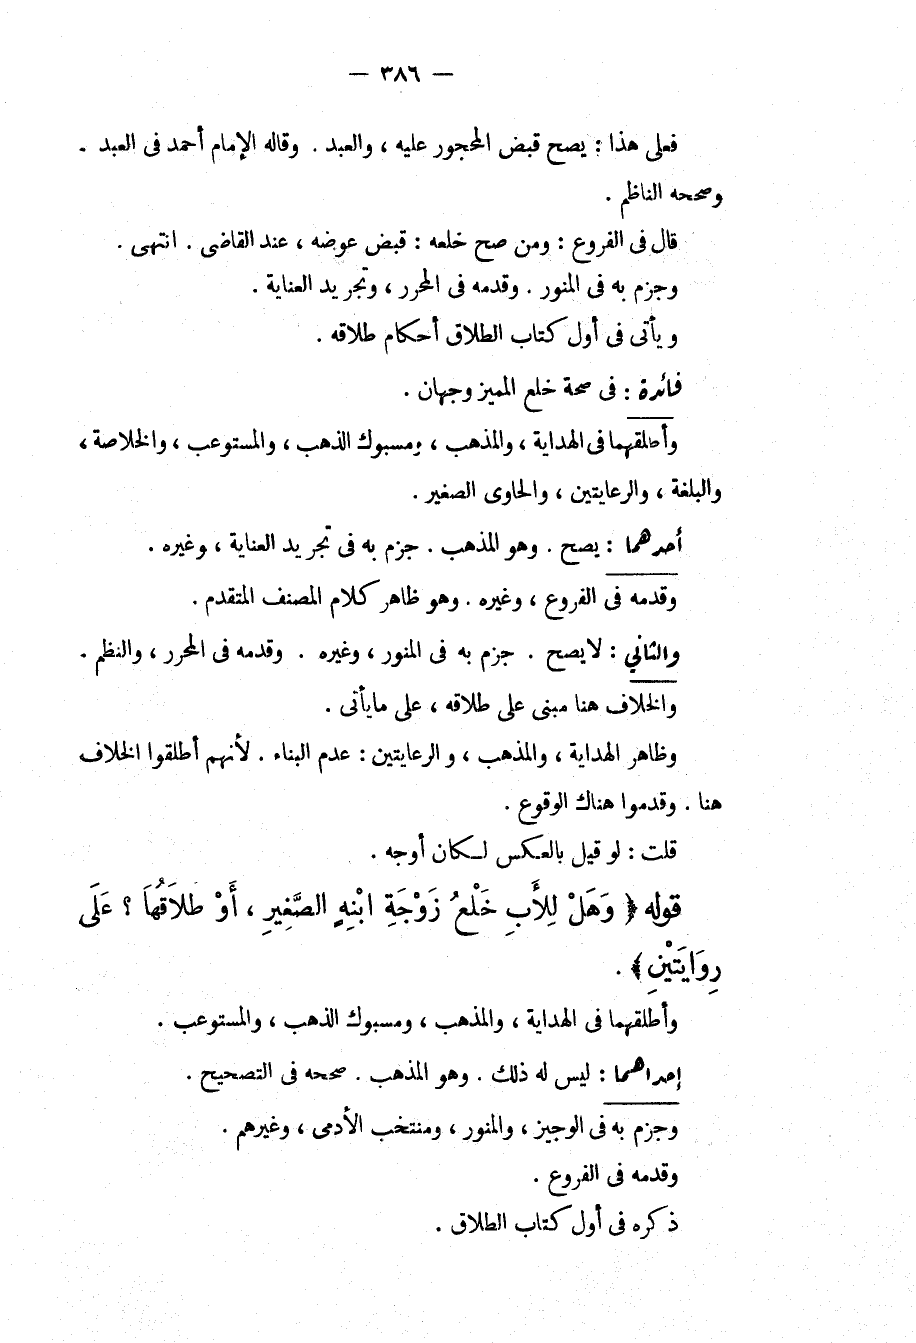 — ٣٨٦ —
فعلى هذا : يصح قبض المحجور عليه ، والعبد . وقاله الإمام أحمد فى العبد .
وصححه الناظم .
قال فى الفروع : ومن صح خلعه : قبض عوضه ، عند القاضى . انتهى .
وجزم به فى المنور . وقدمه فى المحرر ، وتجريد العناية .
ويأتى فى أول كتاب الطلاق أحكام طلاقه .
فائدة : فى صحة خلع المميز وجهان .
وأطلقهما فى الهداية ، والمذهب ، ومسبوك الذهب ، والمستوعب ، والخلاصة ،
والبلغة ، والرعايتين ، والحاوى الصغير .
أحدهما : يصح . وهو المذهب . جزم به فى تجريد العناية ، وغيره .
وقدمه فى الفروع ، وغيره . وهو ظاهر كلام المصنف المتقدم .
والثاني : لا يصح . جزم به فى المنور ، وغيره . وقدمه فى المحرر ، والنظم .
والخلاف هنا مبنى على طلاقه ، على مايأتى .
وظاهر الهداية ، والمذهب ، والرعايتين : عدم البناء . لأنهم أطلقوا الخلاف
هنا . وقدموا هناك الوقوع .
قلت : لو قيل بالعكس لكان أوجه .
قوله ﴿ وَهَلْ لِلْأَبِ خَلْعُ زَوْجَةِ ابْنِهِ الصَّغِيرِ ، أَوْ طَلَاقُهَا ؟ عَلَى
رِوَايَتَيْنِ ﴾ .
وأطلقهما فى الهداية ، والمذهب ، ومسبوك الذهب ، والمستوعب .
إحداهما : ليس له ذلك . وهو المذهب . صححه فى التصحيح .
وجزم به فى الوجيز ، والمنور ، ومنتخب الأدمى ، وغيرهم .
وقدمه فى الفروع .
ذكره فى أول كتاب الطلاق .